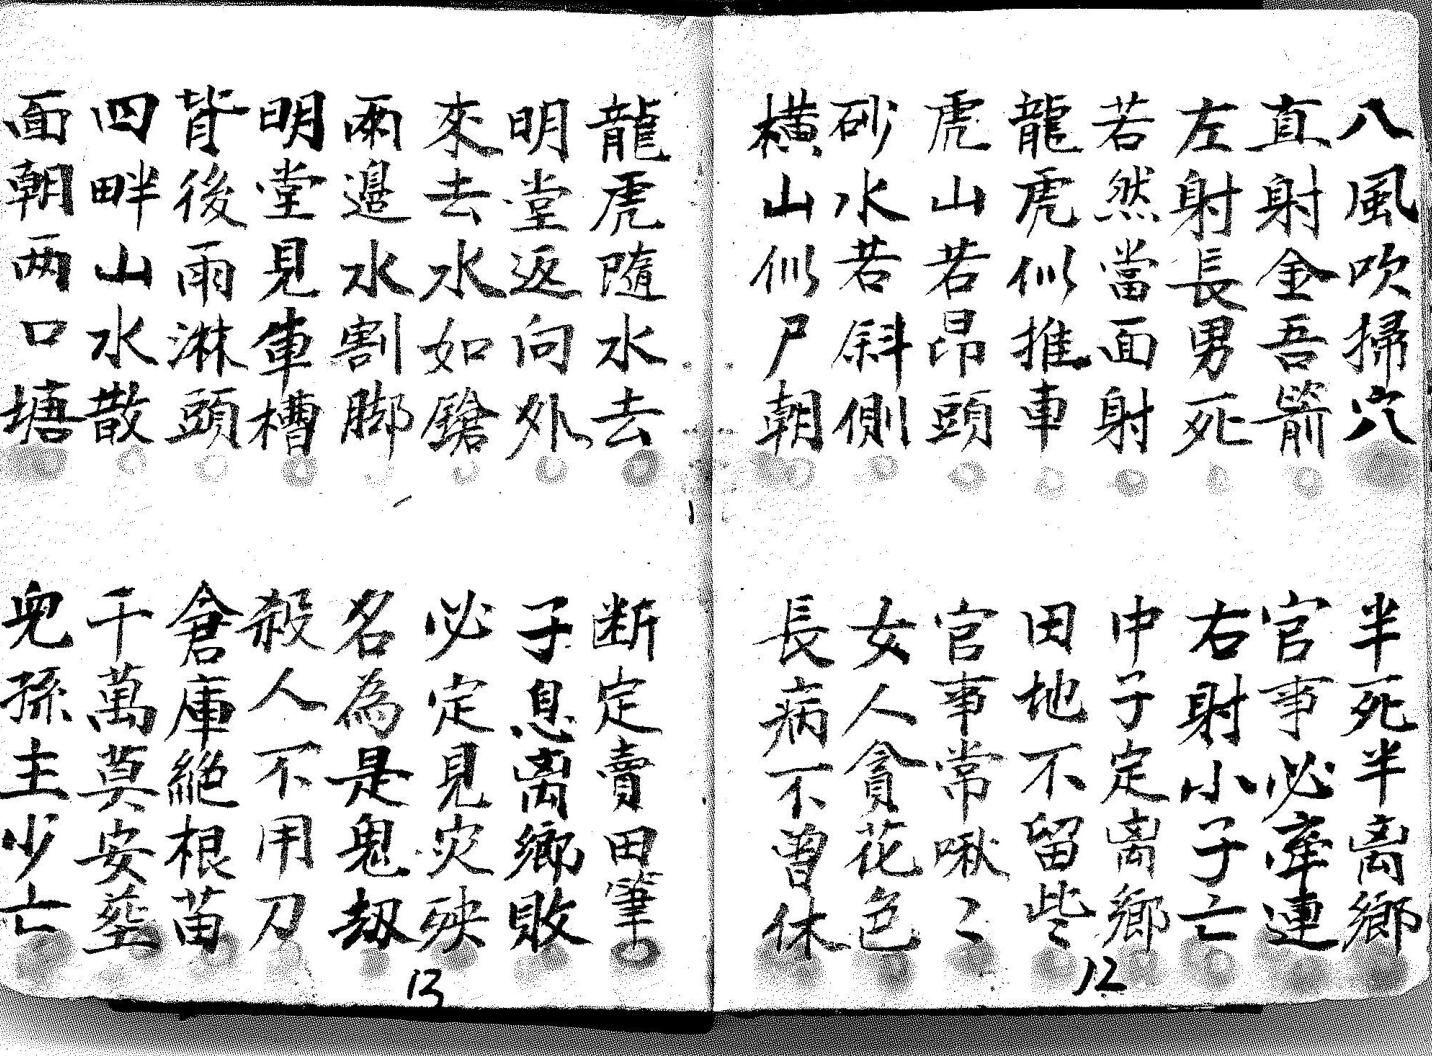 八風吹掃穴
半死半离鄉
直射金吾箭
官事必牽連
左射長男死
右射小子亡
若然當面射
中子定离鄉
龍虎似推車
田地不留些
虎山若昂頭
官事常啾〻
砂水若斜側
女人貪花色
橫山似尸朝
長病不曾休
12
龍虎隨水去
断定賣田筆
明堂返向外
子息离鄉敗
來去水如鎗
必定見灾殃
兩邊水割脚
名為是鬼刼
明堂見車槽
殺人不用刀
背後雨淋頭
倉庫絕根苗
四畔山水散
千萬莫安塋
面朝两口塘
兒孫主少亡
13